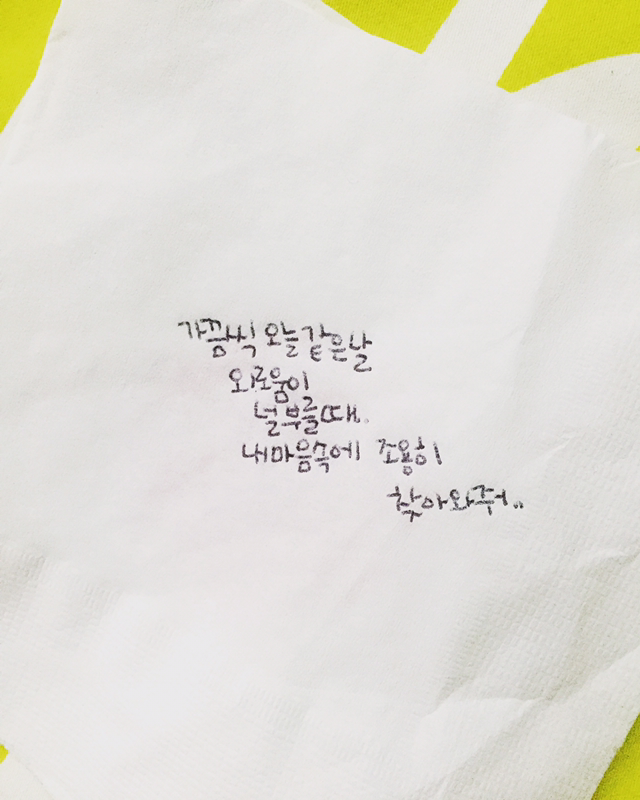 가끔씩 오늘 같은 날
외로움이
널 부를 때.
내 마음속에 조용히
찾아와줘..